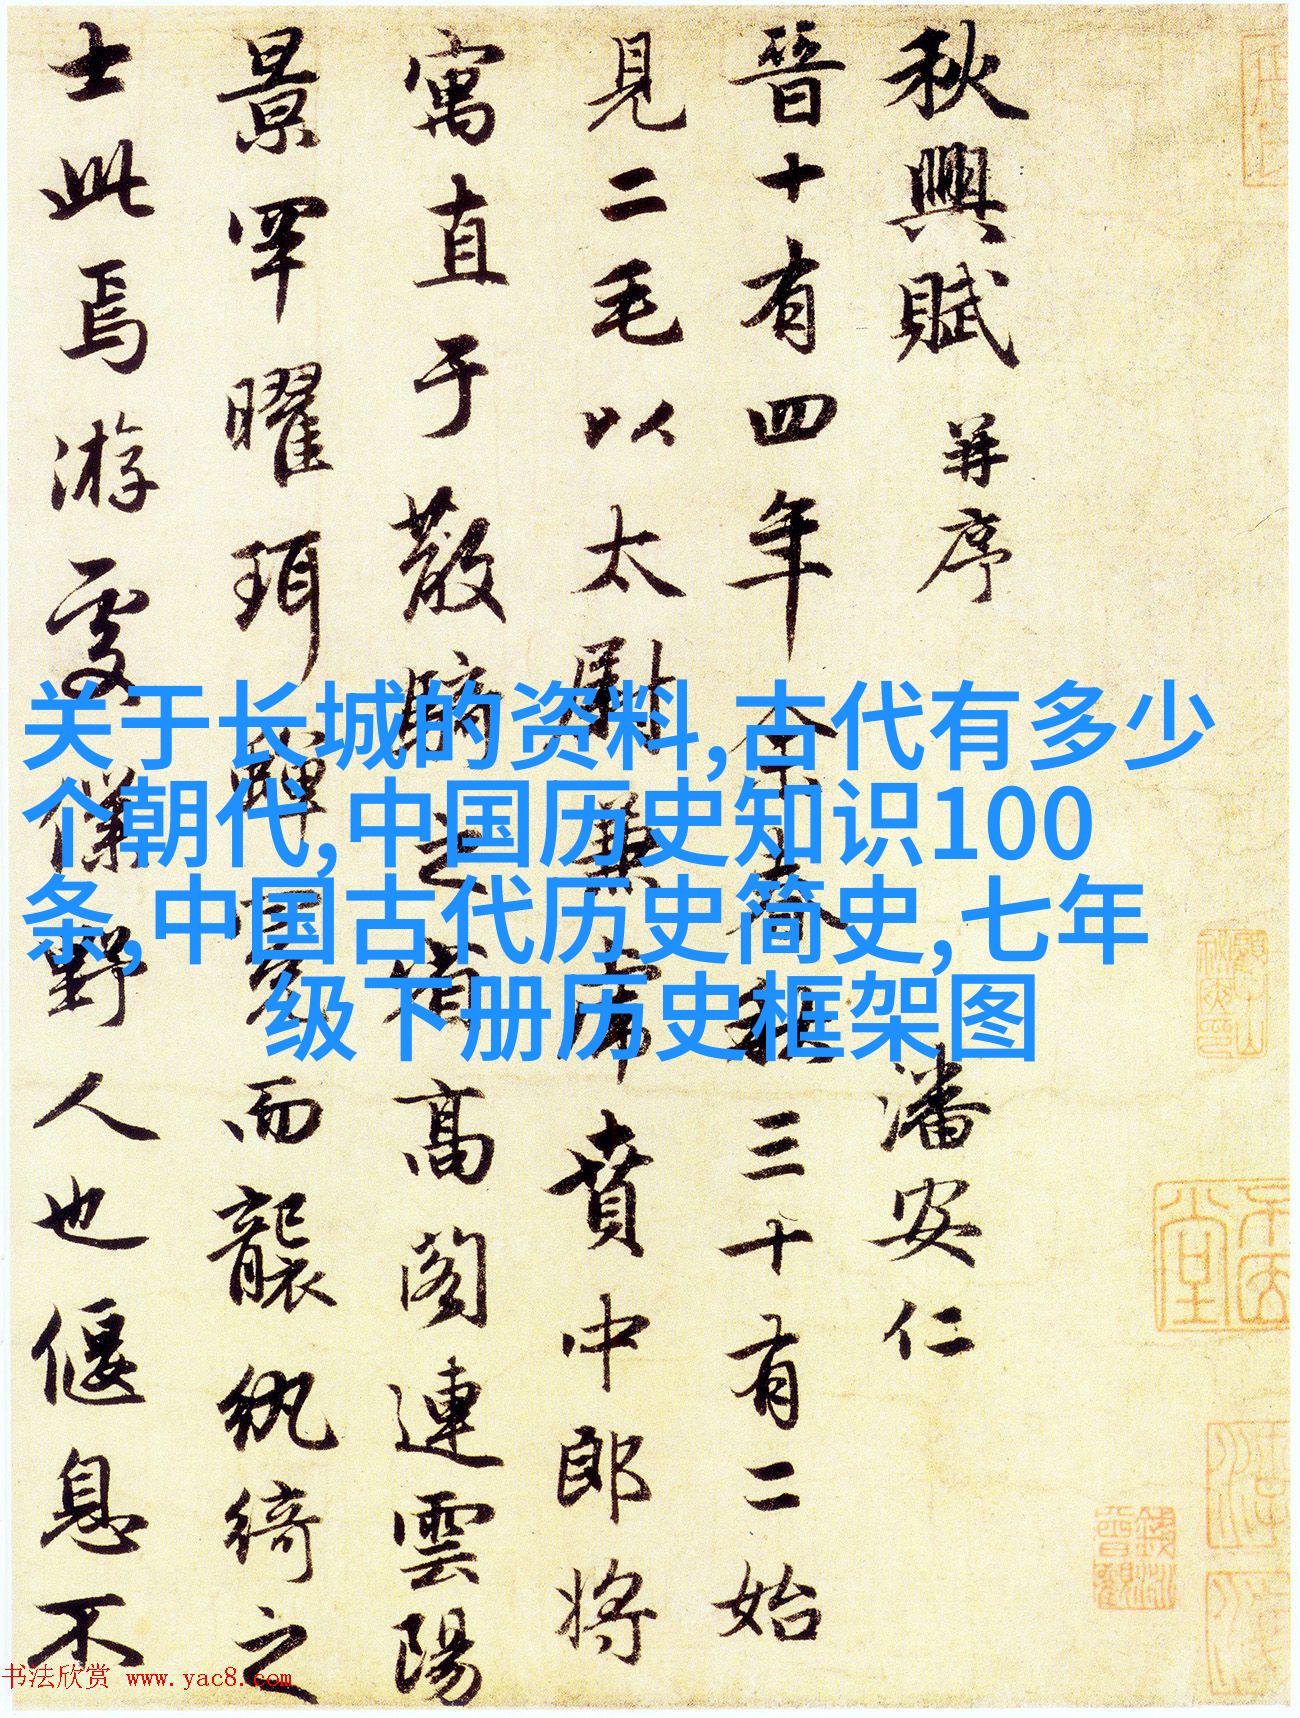 秋興賦 并序 潘安仁
晉十有四年余春秋三十有二始
見二毛以太尉兼虎賁中郎将
寓直于散騎之省高閣連雲陽
景罕曜珥蟬冕而襲紈綺之
士此焉游處僕野人也偃息不
关于长城的资料,古代有多少
个朝代,中国历史知识100
条,中国古代历史简史,七年
级下册历史框架图
书法欣赏 www.yac8.com